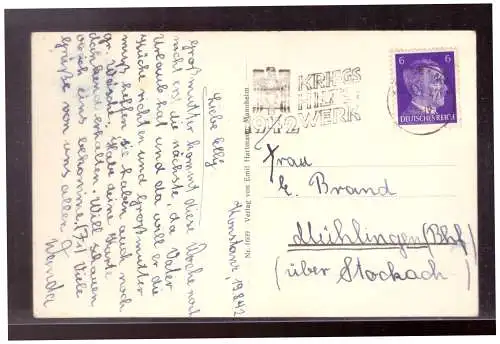 Konstanz, 19.8.42
Liebe Elly
Großmutter kommt diese Woche noch
nicht erst die nächste, da Vater
Urlaub hat und da will er die
Küche machen und Großmutter
muß helfen sie haben auch noch
gr. Wäsche. Habe deine Karte
dankend erhalten. Will schauen
ob ich eins bekomme (7.) Viele
Grüße von uns allen
Wanda
Nr. 1609 Verlag von Emil Hartmann, Mannheim
KRIEGS
HILFS
WERK
1942
6 6
DEUTSCHES REICH
Frau
E. Brand
Mühlingen (Bhf)
(über Stockach)